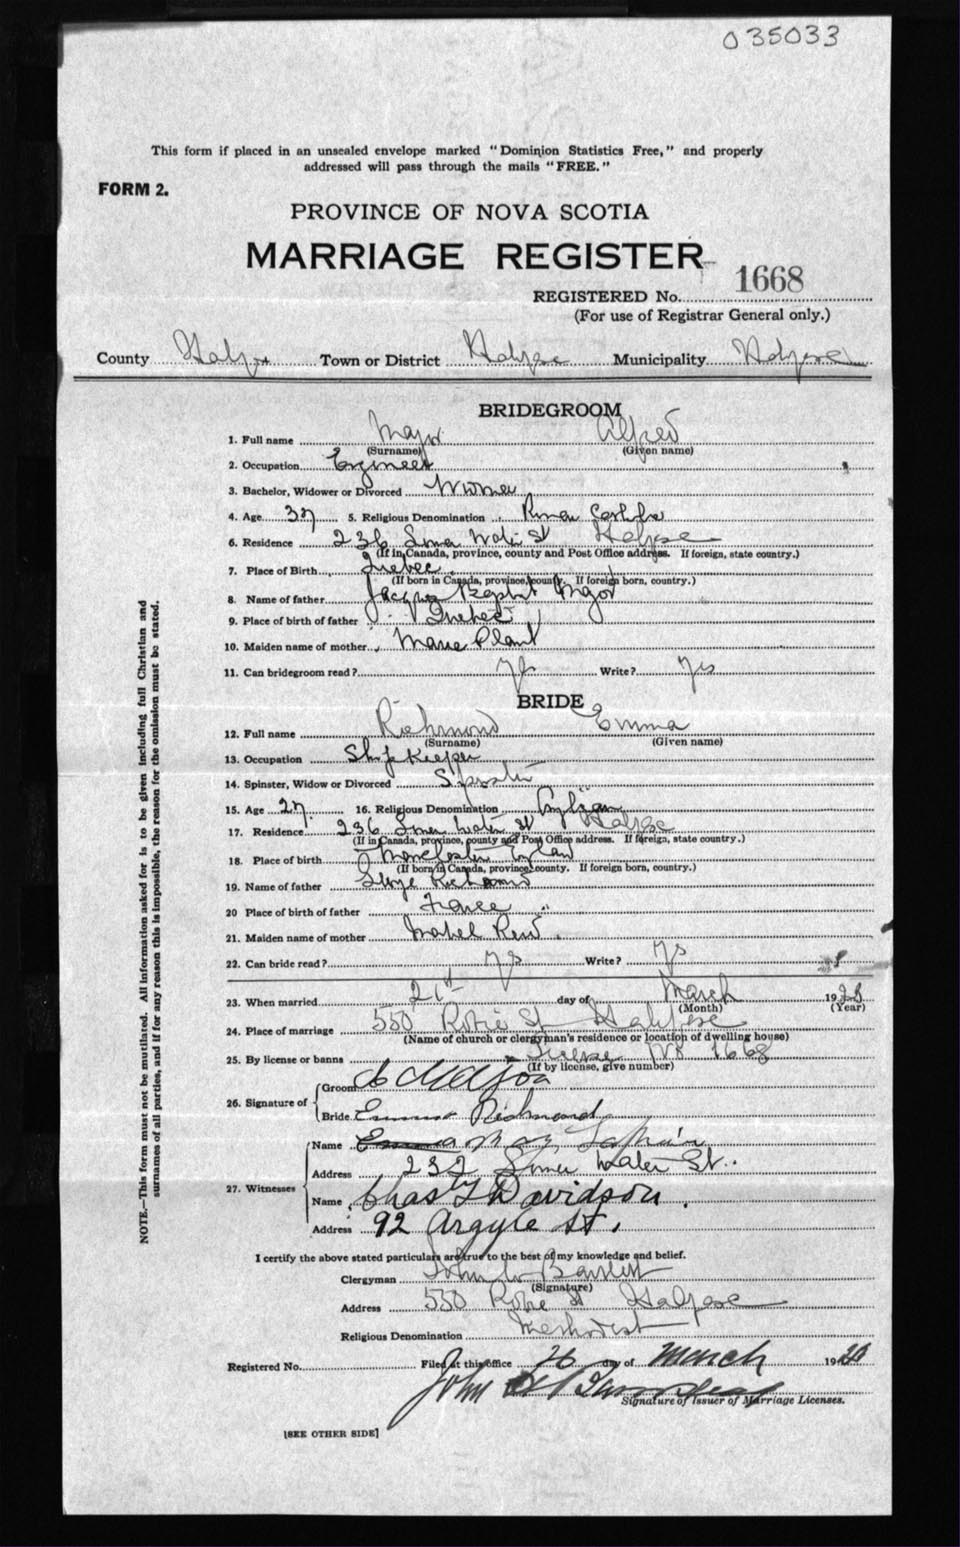 035033
This form if placed in an unsealed envelope marked "Dominion Statistics Free," and properly
addressed will pass through the mails "FREE."
FORM 2.
PROVINCE OF NOVA SCOTIA
MARRIAGE REGISTER
REGISTERED No. 1668
(For use of Registrar General only.)
County Halifax Town or District Halifax Municipality Halifax
BRIDEGROOM
1. Full name Major Alfred
(Surname) (Given name)
2. Occupation Engineer
3. Bachelor, Widower or Divorced Widower
4. Age 37 5. Religious Denomination Roman Catholic
6. Residence 236 Lower Water St Halifax
(If in Canada, province, county and Post Office address. If foreign, state country.)
7. Place of Birth Quebec
(If born in Canada, province, county. If foreign born, country.)
8. Name of father Jacques Baptist Major
9. Place of birth of father Quebec
10. Maiden name of mother Marie Plant
11. Can bridegroom read? Yes Write? Yes
BRIDE
12. Full name Richmond Emma
(Surname) (Given name)
13. Occupation Shop Keeper
14. Spinster, Widow or Divorced Spinster
15. Age 27 16. Religious Denomination
17. Residence 236 Lower Water St Halifax
(If in Canada, province, county and Post Office address. If foreign, state country.)
18. Place of birth Manchester England
(If born in Canada, province, county. If foreign born, country.)
19. Name of father George Richmond
20 Place of birth of father France "
21. Maiden name of mother Mabel
22. Can bride read? Yes Write? Yes
23. When married day of March 192
(Month) (Year)
24. Place of marriage 550 Robie St Halifax
(Name of church or clergyman's residence or location of dwelling house)
25. By license or banns License No 1668
(If by license, give number)
26. Signature of Groom
Bride Emma Richmond
27. Witnesses Name May
Address 232 Lower Water St.
Name Chas T Davidson
Address 92 Argyle St.
I certify the above stated particulars are true to the best of my knowledge and belief.
Clergyman John
(Signature)
Address 550 Robie St Halifax
Religious Denomination Methodist
Registered No. Filed at this office 26 day of March 192
John
Signature of Issuer of Marriage Licenses.
[SEE OTHER SIDE]
NOTE.—This form must not be mutilated. All information asked for is to be given including full Christian and
surnames of all parties, and if for any reason this is impossible, the reason for the omission must be stated.